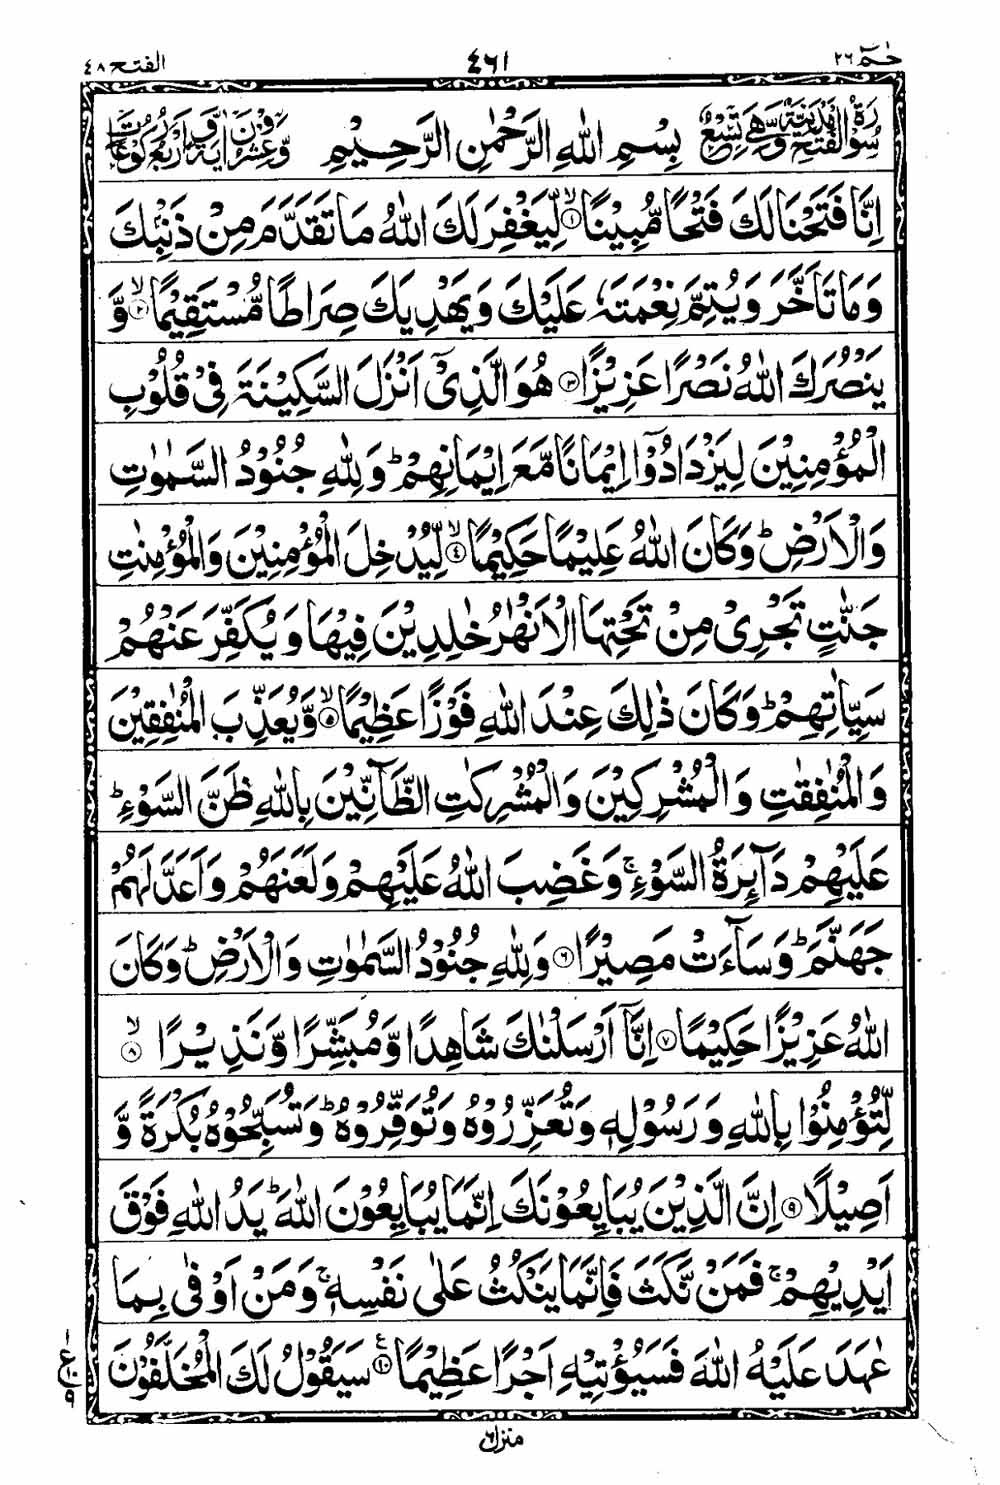 حٰمٓ ٢٦
٤٦١
الفتح ٤٨
سُوْرَةُ الْفَتْحِ مَدَنِيَّةٌ وَّهِيَ تِسْعٌ بِسْمِ اللّٰهِ الرَّحْمٰنِ الرَّحِيْمِ وَّعِشْرُوْنَ اٰيَةً وَّاَرْبَعُ رُكُوْعَاتٍ
اِنَّا فَتَحْنَا لَكَ فَتْحًا مُّبِيْنًا ۙ﴿١﴾ لِّيَغْفِرَ لَكَ اللّٰهُ مَا تَقَدَّمَ مِنْ ذَنْۢبِكَ
وَمَا تَاَخَّرَ وَيُتِمَّ نِعْمَتَهٗ عَلَيْكَ وَيَهْدِيَكَ صِرَاطًا مُّسْتَقِيْمًا ۙ﴿٢﴾ وَّ
يَنْصُرَكَ اللّٰهُ نَصْرًا عَزِيْزًا ﴿٣﴾ هُوَ الَّذِيْٓ اَنْزَلَ السَّكِيْنَةَ فِيْ قُلُوْبِ
الْمُؤْمِنِيْنَ لِيَزْدَادُوْٓا اِيْمَانًا مَّعَ اِيْمَانِهِمْ ؕ وَلِلّٰهِ جُنُوْدُ السَّمٰوٰتِ
وَالْاَرْضِ ؕ وَكَانَ اللّٰهُ عَلِيْمًا حَكِيْمًا ۙ﴿٤﴾ لِّيُدْخِلَ الْمُؤْمِنِيْنَ وَالْمُؤْمِنٰتِ
جَنّٰتٍ تَجْرِيْ مِنْ تَحْتِهَا الْاَنْهٰرُ خٰلِدِيْنَ فِيْهَا وَيُكَفِّرَ عَنْهُمْ
سَيِّاٰتِهِمْ ؕ وَكَانَ ذٰلِكَ عِنْدَ اللّٰهِ فَوْزًا عَظِيْمًا ۙ﴿٥﴾ وَّيُعَذِّبَ الْمُنٰفِقِيْنَ
وَالْمُنٰفِقٰتِ وَالْمُشْرِكِيْنَ وَالْمُشْرِكٰتِ الظَّآنِّيْنَ بِاللّٰهِ ظَنَّ السَّوْءِ ؕ
عَلَيْهِمْ دَآئِرَةُ السَّوْءِ ۚ وَغَضِبَ اللّٰهُ عَلَيْهِمْ وَلَعَنَهُمْ وَاَعَدَّ لَهُمْ
جَهَنَّمَ ؕ وَسَآءَتْ مَصِيْرًا ﴿٦﴾ وَلِلّٰهِ جُنُوْدُ السَّمٰوٰتِ وَالْاَرْضِ ؕ وَكَانَ
اللّٰهُ عَزِيْزًا حَكِيْمًا ﴿٧﴾ اِنَّآ اَرْسَلْنٰكَ شَاهِدًا وَّمُبَشِّرًا وَّنَذِيْرًا ۙ﴿٨﴾
لِّتُؤْمِنُوْا بِاللّٰهِ وَرَسُوْلِهٖ وَتُعَزِّرُوْهُ وَتُوَقِّرُوْهُ ؕ وَتُسَبِّحُوْهُ بُكْرَةً وَّ
اَصِيْلًا ﴿٩﴾ اِنَّ الَّذِيْنَ يُبَايِعُوْنَكَ اِنَّمَا يُبَايِعُوْنَ اللّٰهَ ؕ يَدُ اللّٰهِ فَوْقَ
اَيْدِيْهِمْ ۚ فَمَنْ نَّكَثَ فَاِنَّمَا يَنْكُثُ عَلٰى نَفْسِهٖ ۚ وَمَنْ اَوْفٰى بِمَا
عٰهَدَ عَلَيْهُ اللّٰهَ فَسَيُؤْتِيْهِ اَجْرًا عَظِيْمًا ﴿١٠﴾ ع سَيَقُوْلُ لَكَ الْمُخَلَّفُوْنَ
١ ع ١٠ ٩
منزل ٦